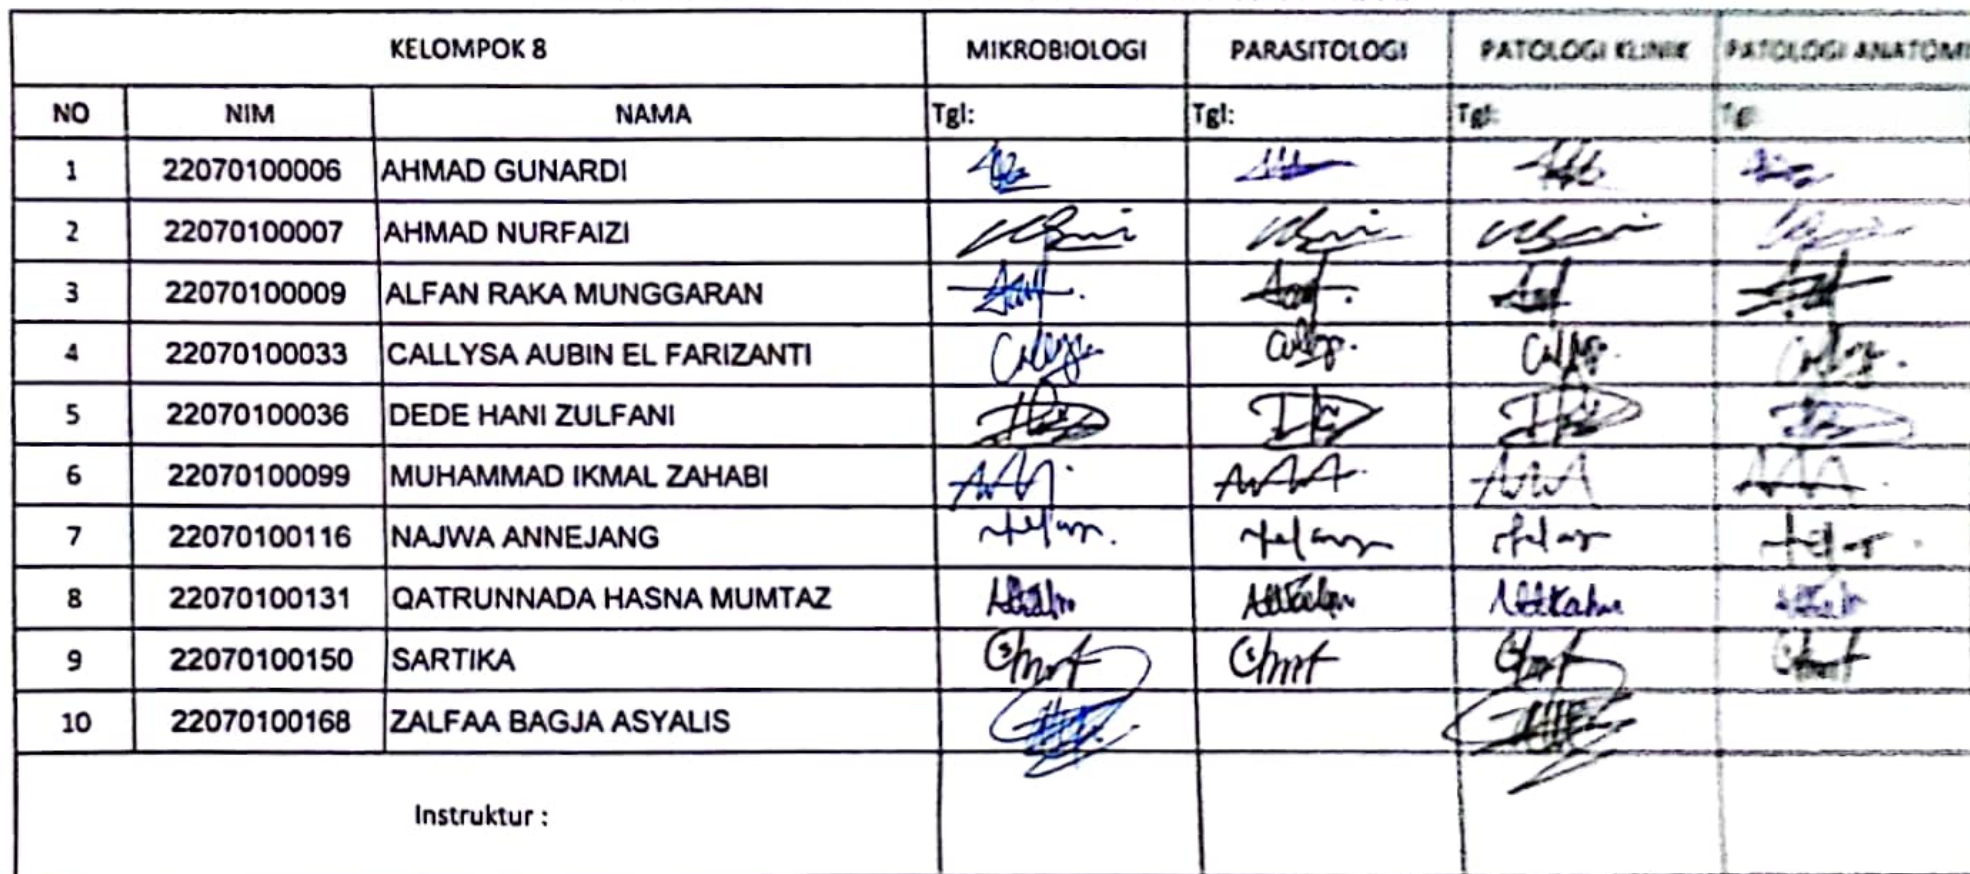 KELOMPOK 8 MIKROBIOLOGI PARASITOLOGI PATOLOGI KLINIK PATOLOGI ANATOMI
NO NIM NAMA Tgl: Tgl: Tgl: Tgl:
1 22070100006 AHMAD GUNARDI
2 22070100007 AHMAD NURFAIZI
3 22070100009 ALFAN RAKA MUNGGARAN
4 22070100033 CALLYSA AUBIN EL FARIZANTI
5 22070100036 DEDE HANI ZULFANI
6 22070100099 MUHAMMAD IKMAL ZAHABI
7 22070100116 NAJWA ANNEJANG
8 22070100131 QATRUNNADA HASNA MUMTAZ
9 22070100150 SARTIKA
10 22070100168 ZALFAA BAGJA ASYALIS
Instruktur :